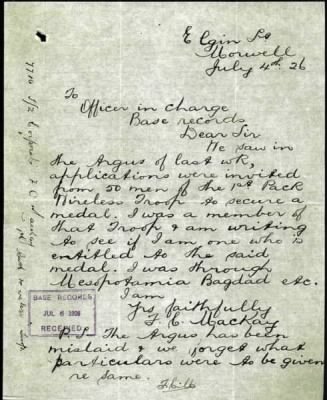 Elgin St
Morwell
July 4th 26
To
Officer in charge
Base records
Dear Sir
We saw in
the Argus of last wk,
applications were invited
from 50 men of the 1st Pack
Wireless Troop to secure a
medal. I was a member of
that Troop & am writing
to see if I am one who is
entitled to the said
medal. I was through
Mesopotamia Bagdad etc.
I am
Yrs faithfully
F. C. Mackay
P.S The Argus has been
mislaid & we forget what
particulars were to be given
re same.
BASE RECORDS
JUL 6 1926
RECEIVED